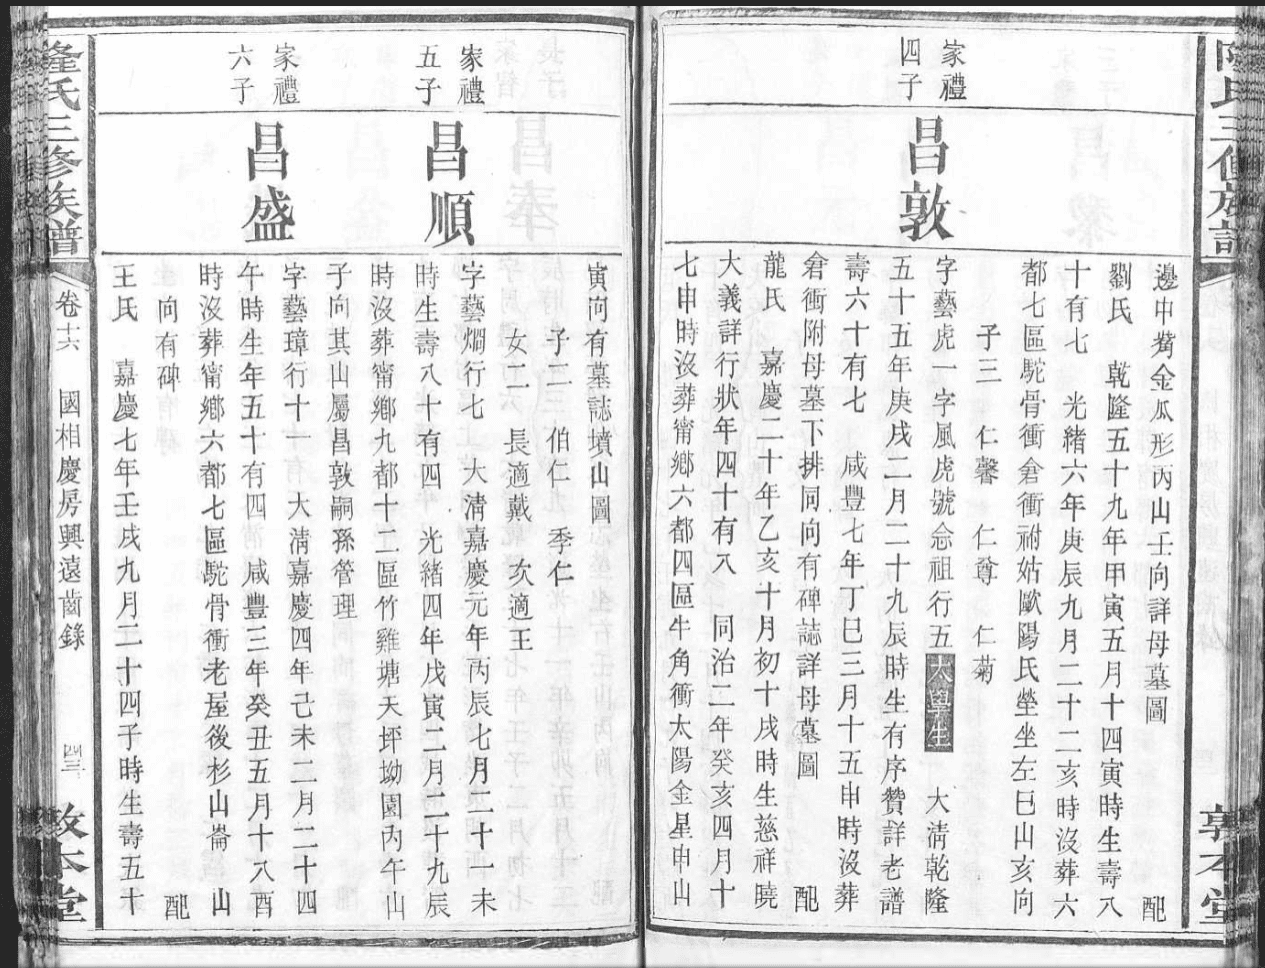 家禮
四子
昌敦
邊申菊金瓜形丙山壬向詳母墓圖 配
劉氏 乾隆五十九年甲寅五月十四寅時生壽八
十有七 光緒六年庚辰九月二十二亥時沒葬六
都七區駝骨衝倉衝祔姑歐陽氏塋坐左巳山亥向
子三 仁馨 仁尊 仁菊
字藝虎一字風虎號念祖行五太學生 大淸乾隆
五十五年庚戌七月二十九辰時生有序贊詳老譜
壽六十有七 咸豐七年丁巳三月十五申時沒葬
倉衝附母墓下排同向有碑誌詳母墓圖 配
龍氏 嘉慶二十年乙亥十月初十戌時生慈祥曉
大義詳行狀年四十有八 同治二年癸亥四月十
七申時沒葬甯鄉六都四區牛角衝太陽金星申山
家禮
五子
昌順
家禮
六子
昌盛
寅向有墓誌墳山圖
子二 伯仁 季仁
女二 長適戴 次適王
字藝爛行七 大淸嘉慶元年丙辰七月二十一未
時生壽八十有四 光緒四年戊寅二月二十九辰
時沒葬甯鄉九都十二區竹雞塘天坪坳園丙午山
子向其山屬昌敦嗣孫管理
字藝璋行十 大淸嘉慶四年己未二月二十四
午時生年五十有四 咸豐三年癸丑五月十八酉
時沒葬甯鄉六都七區駝骨衝老屋後杉山崙 山
向有碑 配
王氏 嘉慶七年壬戌九月二十四子時生壽五十
隆氏三修族譜
卷十六 國相慶房興遠齒錄
四三
敦本堂